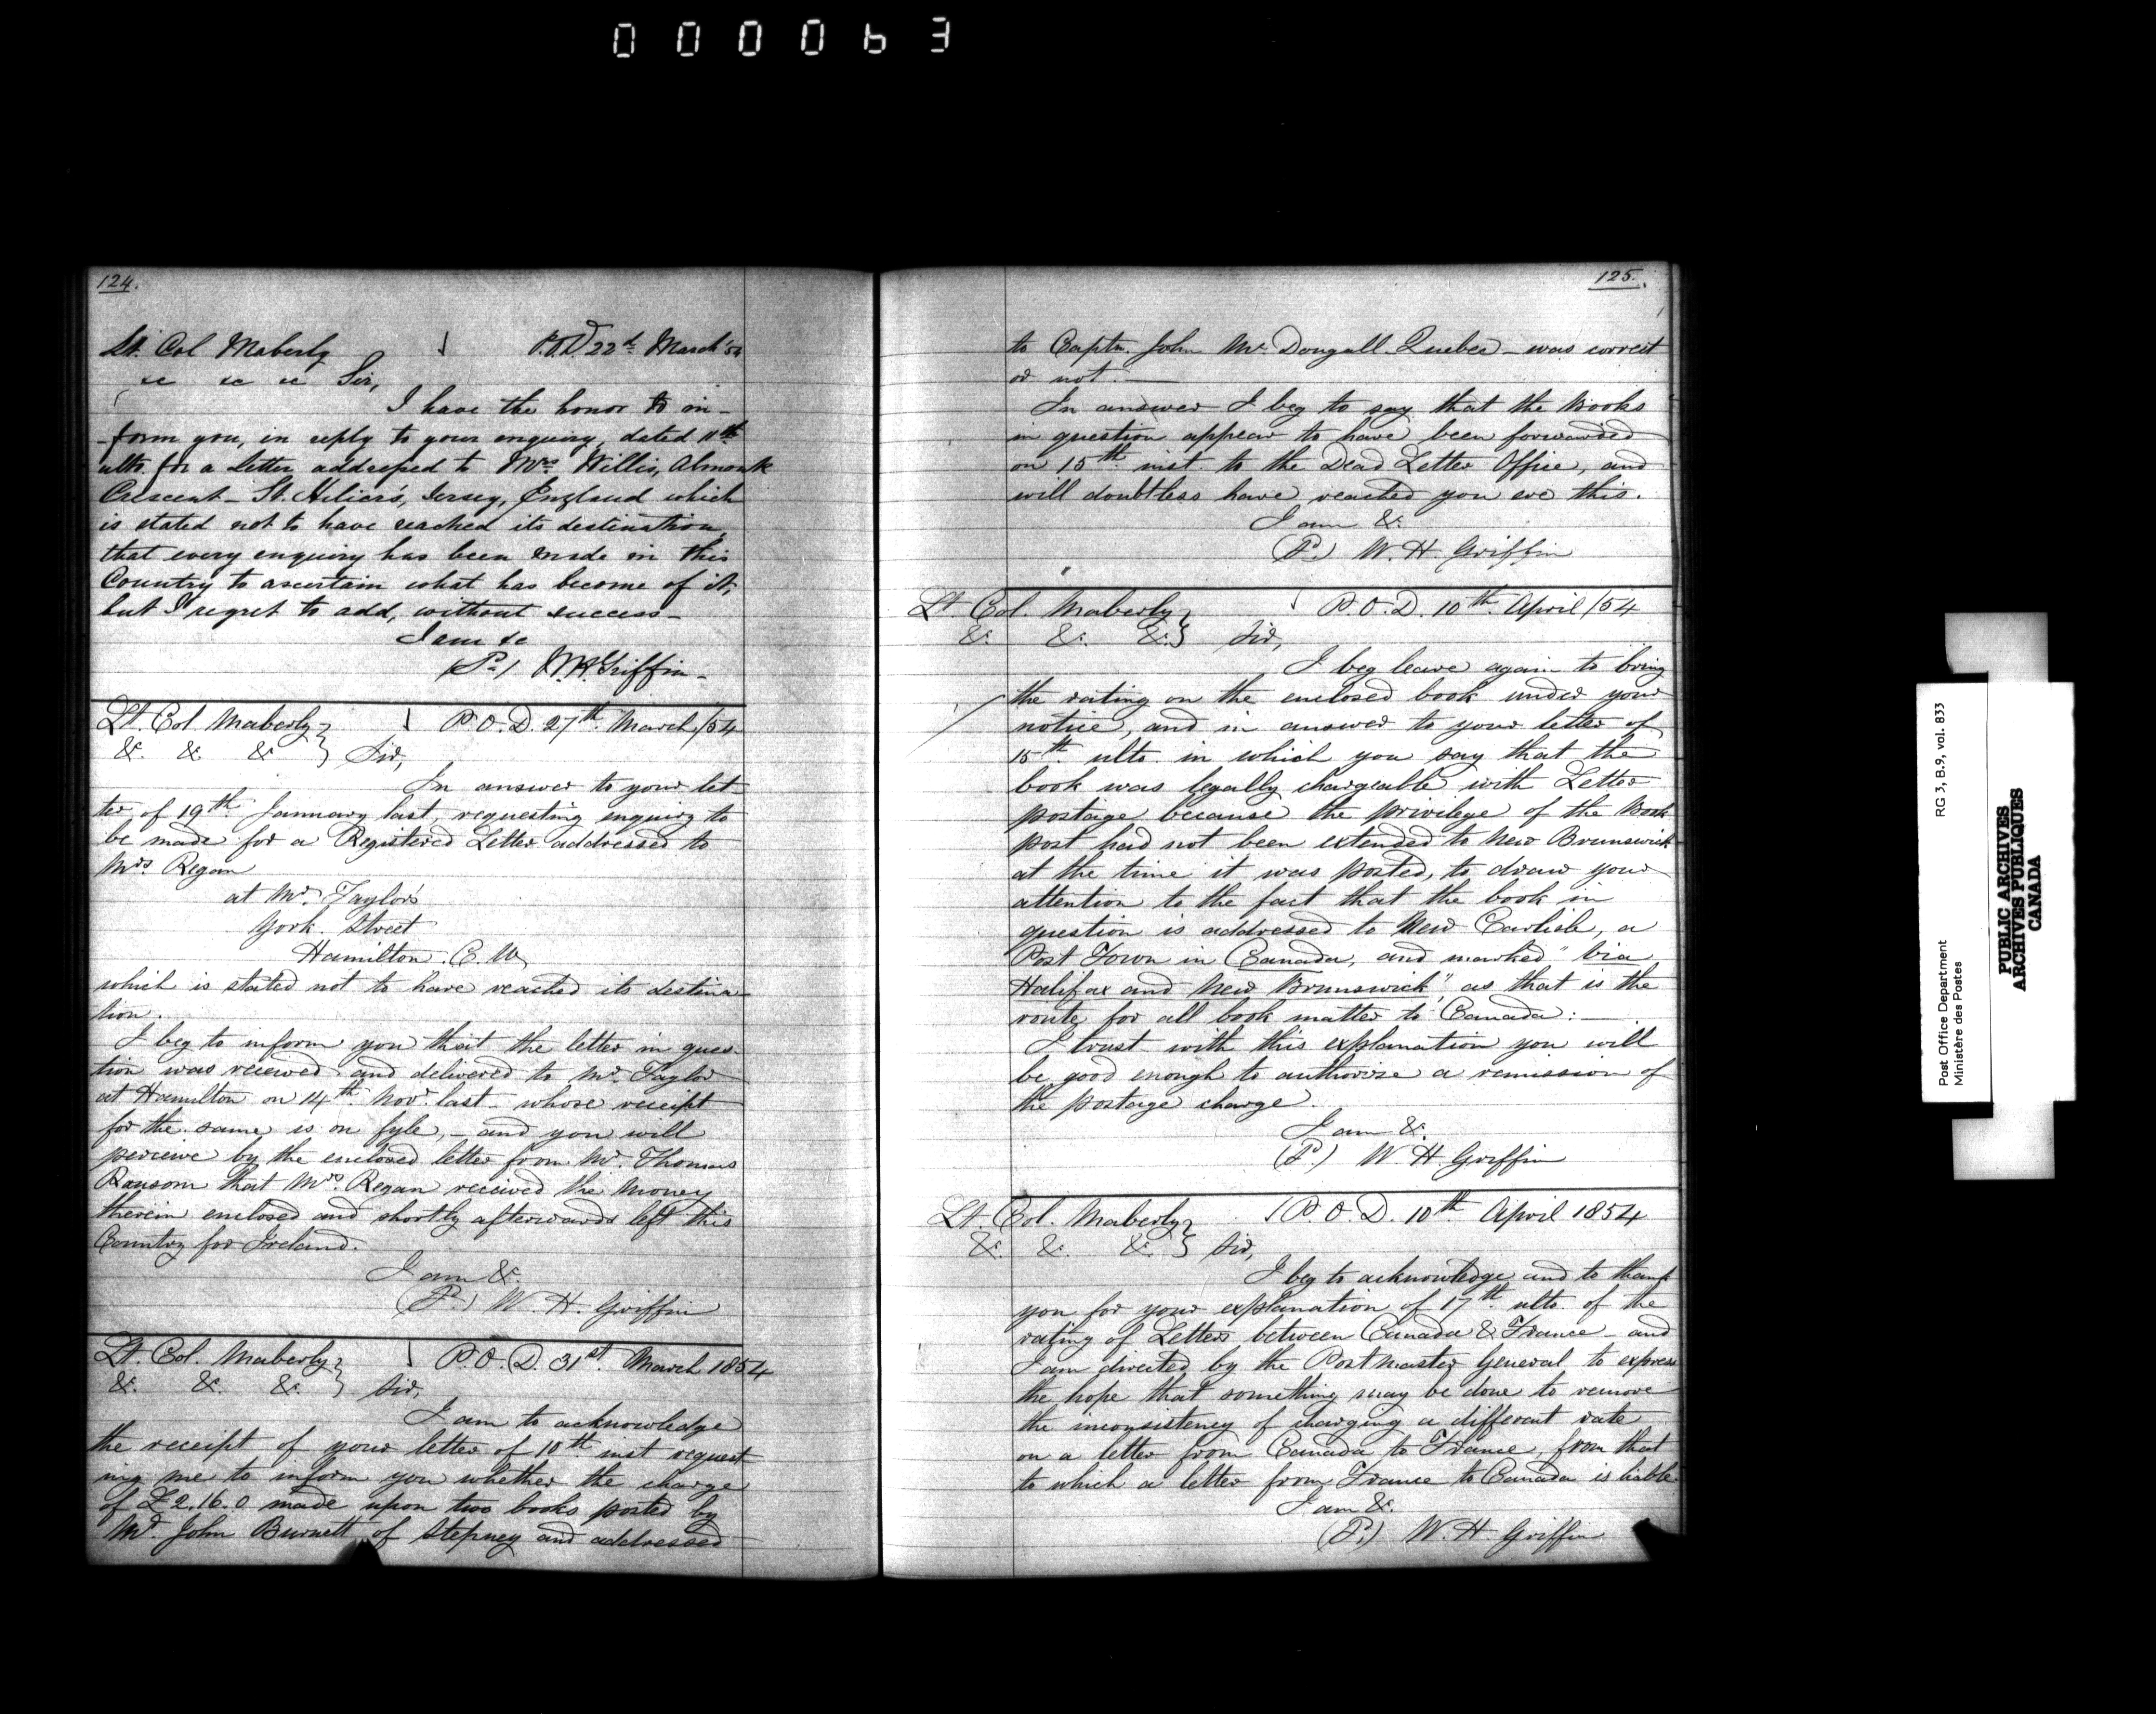 000063
124.
Lt. Col Maberly P.O.D 22d March '54
&c &c &c Sir,
I have the honor to in-
-form you, in reply to your enquiry, dated 11th
ulto. for a Letter addressed to Mrs Willis, Almorah
Crescent - St. Hilier's, Jersey, England which
is stated not to have reached its destination,
that every enquiry has been made in this
Country to ascertain what has become of it,
but I regret to add, without success -
I am &c
W.H. Griffin -
Lt. Col Maberly } P.O.D. 27th March /54
&c. &c &c } Sir,
In answer to your let-
ter of 19th January last, requesting inquiry to
be made for a Registered Letter addressed to
Mrs Regan
at Mr. Taylor's
York Street
Hamilton. C.W.
which is stated not to have reached its destina-
tion.
I beg to inform you that the letter in ques-
tion was received and delivered to Mr. Taylor
at Hamilton on 14th Novr. last - whose receipt
for the same is on fyle, - and you will
perceive by the enclosed letter from Mr. Thomas
Ransom that Mrs. Regan received the money
therein enclosed and shortly afterwards left this
Country for Ireland.
I am &c.
W. H. Griffin
Lt. Col. Maberly } P.O.D. 31st March 1854
&c. &c. &c. } Sir,
I am to acknowledge
the receipt of your letter of 10th inst request-
ing me to inform you whether the charge
of £2.16.0 made upon two books posted by
Mr. John Burnett of Stepney and addressed
125.
to Captn. John McDougall Quebec - was correct
or not. —
In answer I beg to say that the Books
in question appear to have been forwarded
on 15th inst. to the Dead Letter Office, and
will doubtless have reached you ere this.
I am &c.
W. H. Griffin
Lt Col. Maberly } P.O.D. 10th April /54
&c. &c. &c. } Sir,
I beg leave again to bring
the rating on the enclosed book under your
notice, and in answer to your letter of
15th ulto. in which you say that the
book was legally chargeable with Letter
postage because the privilege of the Book
post had not been extended to New Brunswick
at the time it was posted, to draw your
attention to the fact that the book in
question is addressed to New Carlisle, a
Post Town in Canada, and marked "via
Halifax and New Brunswick", as that is the
route for all book matter to Canada: —
I trust with this explanation you will
be good enough to authorize a remission of
the postage charge.
I am &c.
W. H. Griffin
Lt. Col. Maberly } P.O.D. 10th April 1854
&c. &c. &c. } Sir,
I beg to acknowledge and to thank
you for your explanation of 17th ulto. of the
rating of Letters between Canada & France - and
I am directed by the Postmaster General to express
the hope that something may be done to remove
the inconsistency of charging a different rate
on a letter from Canada to France, from that
to which a letter from France to Canada is liable
I am &c.
W. H. Griffin
Post Office Department RG 3, B.9, vol. 833
Ministère des Postes
PUBLIC ARCHIVES
ARCHIVES PUBLIQUES
CANADA